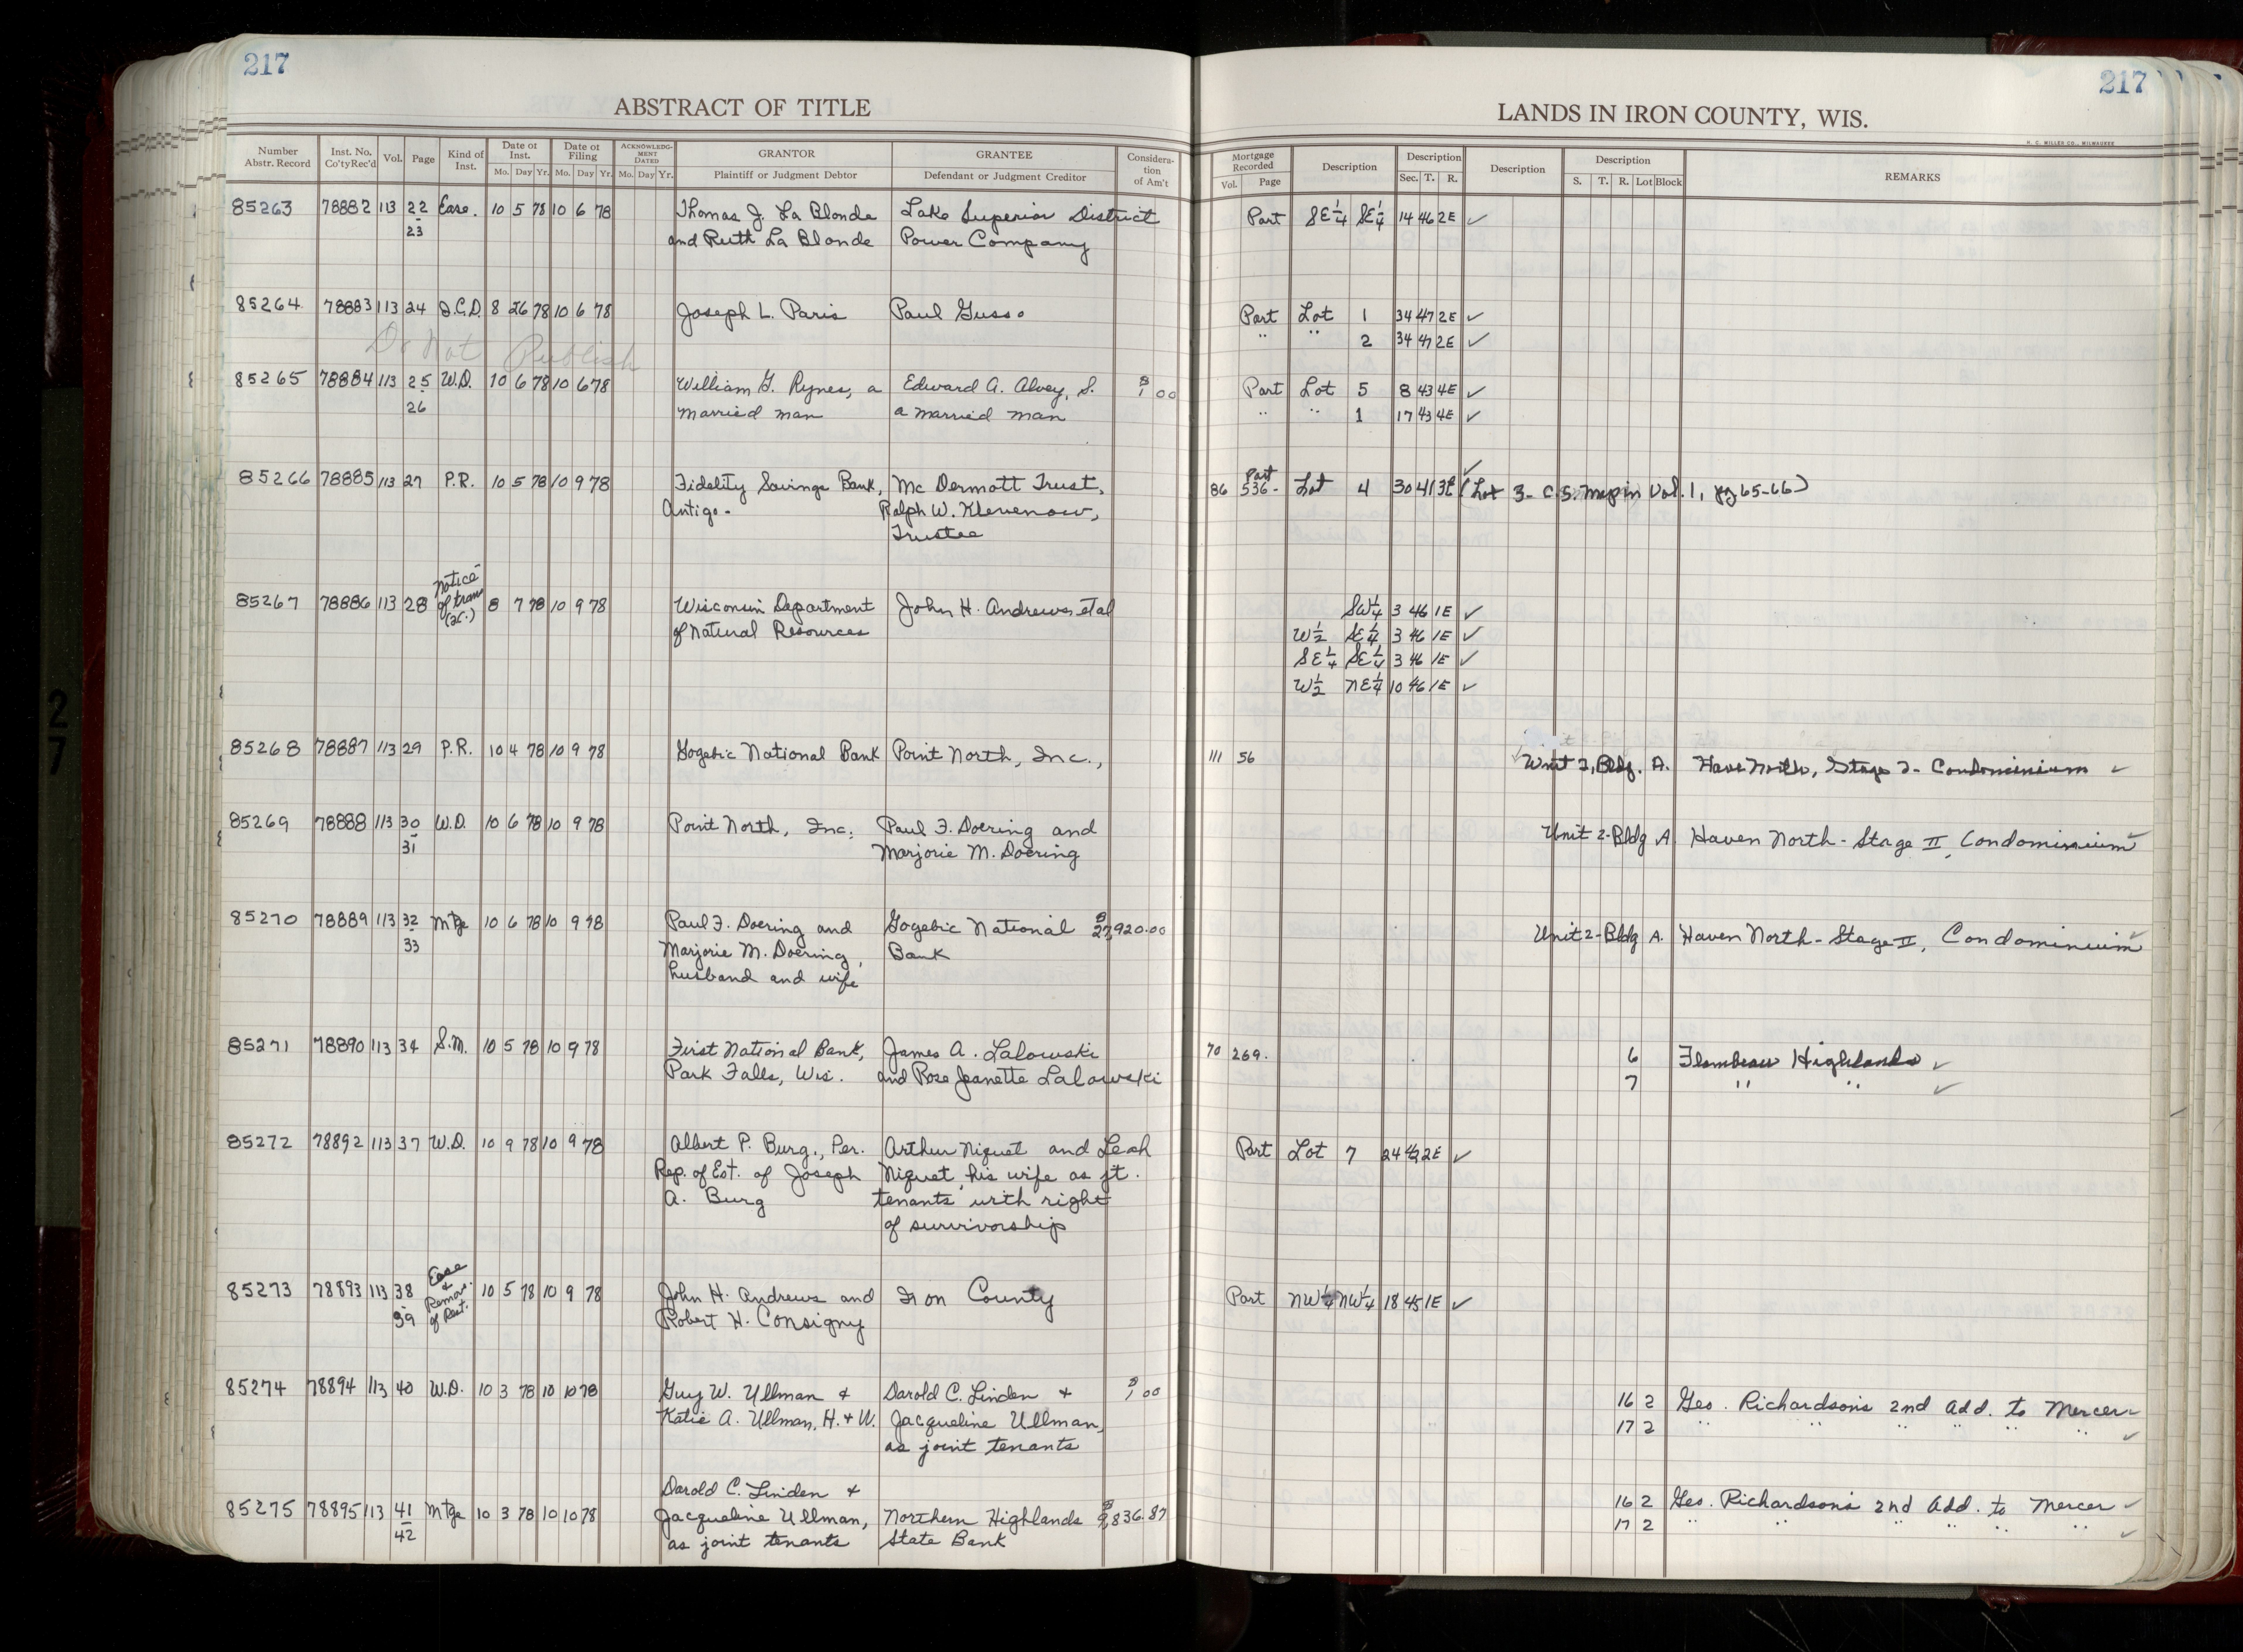 217
ABSTRACT OF TITLE
Number Abstr. Record | Inst. No. Co'ty Rec'd | Vol. | Page | Kind of Inst. | Date of Inst. Mo. Day Yr. | Date of Filing Mo. Day Yr. | ACKNOWLEDGMENT DATED Mo. Day Yr. | GRANTOR Plaintiff or Judgment Debtor | GRANTEE Defendant or Judgment Creditor | Consideration of Am't
85263 78882 113 22 Ease. 10 5 78 10 6 78 Thomas J. La Blonde Lake Superior District
23 and Ruth La Blonde Power Company
85264 78883 113 24 Q.C.D. 8 26 78 10 6 78 Joseph L. Paris Paul Gusso
Do Not Publish
85265 78884 113 25 W.D. 10 6 78 10 6 78 William G. Rynes, a Edward A. Alvey, S. $1 00
26 married man a married man
85266 78885 113 27 P.R. 10 5 78 10 9 78 Fidelity Savings Bank, Mc Dermott Trust,
Antigo - Ralph W. Klevenow,
Trustee
Notice
85267 78886 113 28 of tran 8 7 78 10 9 78 Wisconsin Department John H. Andrews et al
of Natural Resources
85268 78887 113 29 P.R. 10 4 78 10 9 78 Gogebic National Bank Point North, Inc.,
85269 78888 113 30 W.D. 10 6 78 10 9 78 Point North, Inc. Paul F. Doering and
31 Marjorie M. Doering
85270 78889 113 32 Mtge 10 6 78 10 9 78 Paul F. Doering and Gogebic National $27,920.00
33 Marjorie M. Doering, Bank
husband and wife
85271 78890 113 34 S.M. 10 5 78 10 9 78 First National Bank, James A. Lalowski
Park Falls, Wis. and Rose Jeanette Lalowski
85272 78892 113 37 W.D. 10 9 78 10 9 78 Albert P. Burg., Per. Arthur Niquet and Leah
Rep. of Est. of Joseph Niquet, his wife as jt.
A. Burg tenants with right
of survivorship
Ease
&
85273 78893 113 38 Remov. 10 5 78 10 9 78 John H. Andrews and Iron County
39 of Rest. Robert H. Consigny
85274 78894 113 40 W.D. 10 3 78 10 10 78 Guy W. Ullman & Darold C. Linden & $1 00
Katie A. Ullman, H. & W. Jacqueline Ullman,
as joint tenants
Darold C. Linden &
85275 78895 113 41 Mtge 10 3 78 10 10 78 Jacqueline Ullman, Northern Highlands $9,836.87
42 as joint tenants State Bank
217
LANDS IN IRON COUNTY, WIS.
H. C. MILLER CO., MILWAUKEE
Mortgage Recorded Vol. Page | Description | Description Sec. T. R. | Description | Description S. T. R. Lot Block | REMARKS
Part SE¼ SE¼ 14 46 2E ✓
Part Lot 1 34 47 2E ✓
" " 2 34 47 2E ✓
Part Lot 5 8 43 4E ✓
" " 1 17 43 4E ✓
Part
86 536- Lot 4 30 41 3E (Lot 3- C.S. Map in Vol. 1, pg 65-66)
SW¼ 3 46 1E ✓
W½ SE¼ 3 46 1E ✓
SE¼ SE¼ 3 46 1E ✓
W½ NE¼ 10 46 1E ✓
111 56 Unit 2, Bldg. A. Haven North, Stage 2- Condominium ✓
Unit 2-Bldg A Haven North- Stage II, Condominium ✓
Unit 2-Bldg A. Haven North- Stage II, Condominium ✓
70 269. 6 Flambeau Highlands ✓
7 " " ✓
Part Lot 7 24 42 2E ✓
Part NW¼ NW¼ 18 45 1E ✓
16 2 Geo. Richardson's 2nd Add. to Mercer ✓
17 2 " " " " " " ✓
16 2 Geo. Richardson's 2nd Add. to Mercer ✓
17 2 " " " " " " ✓
27